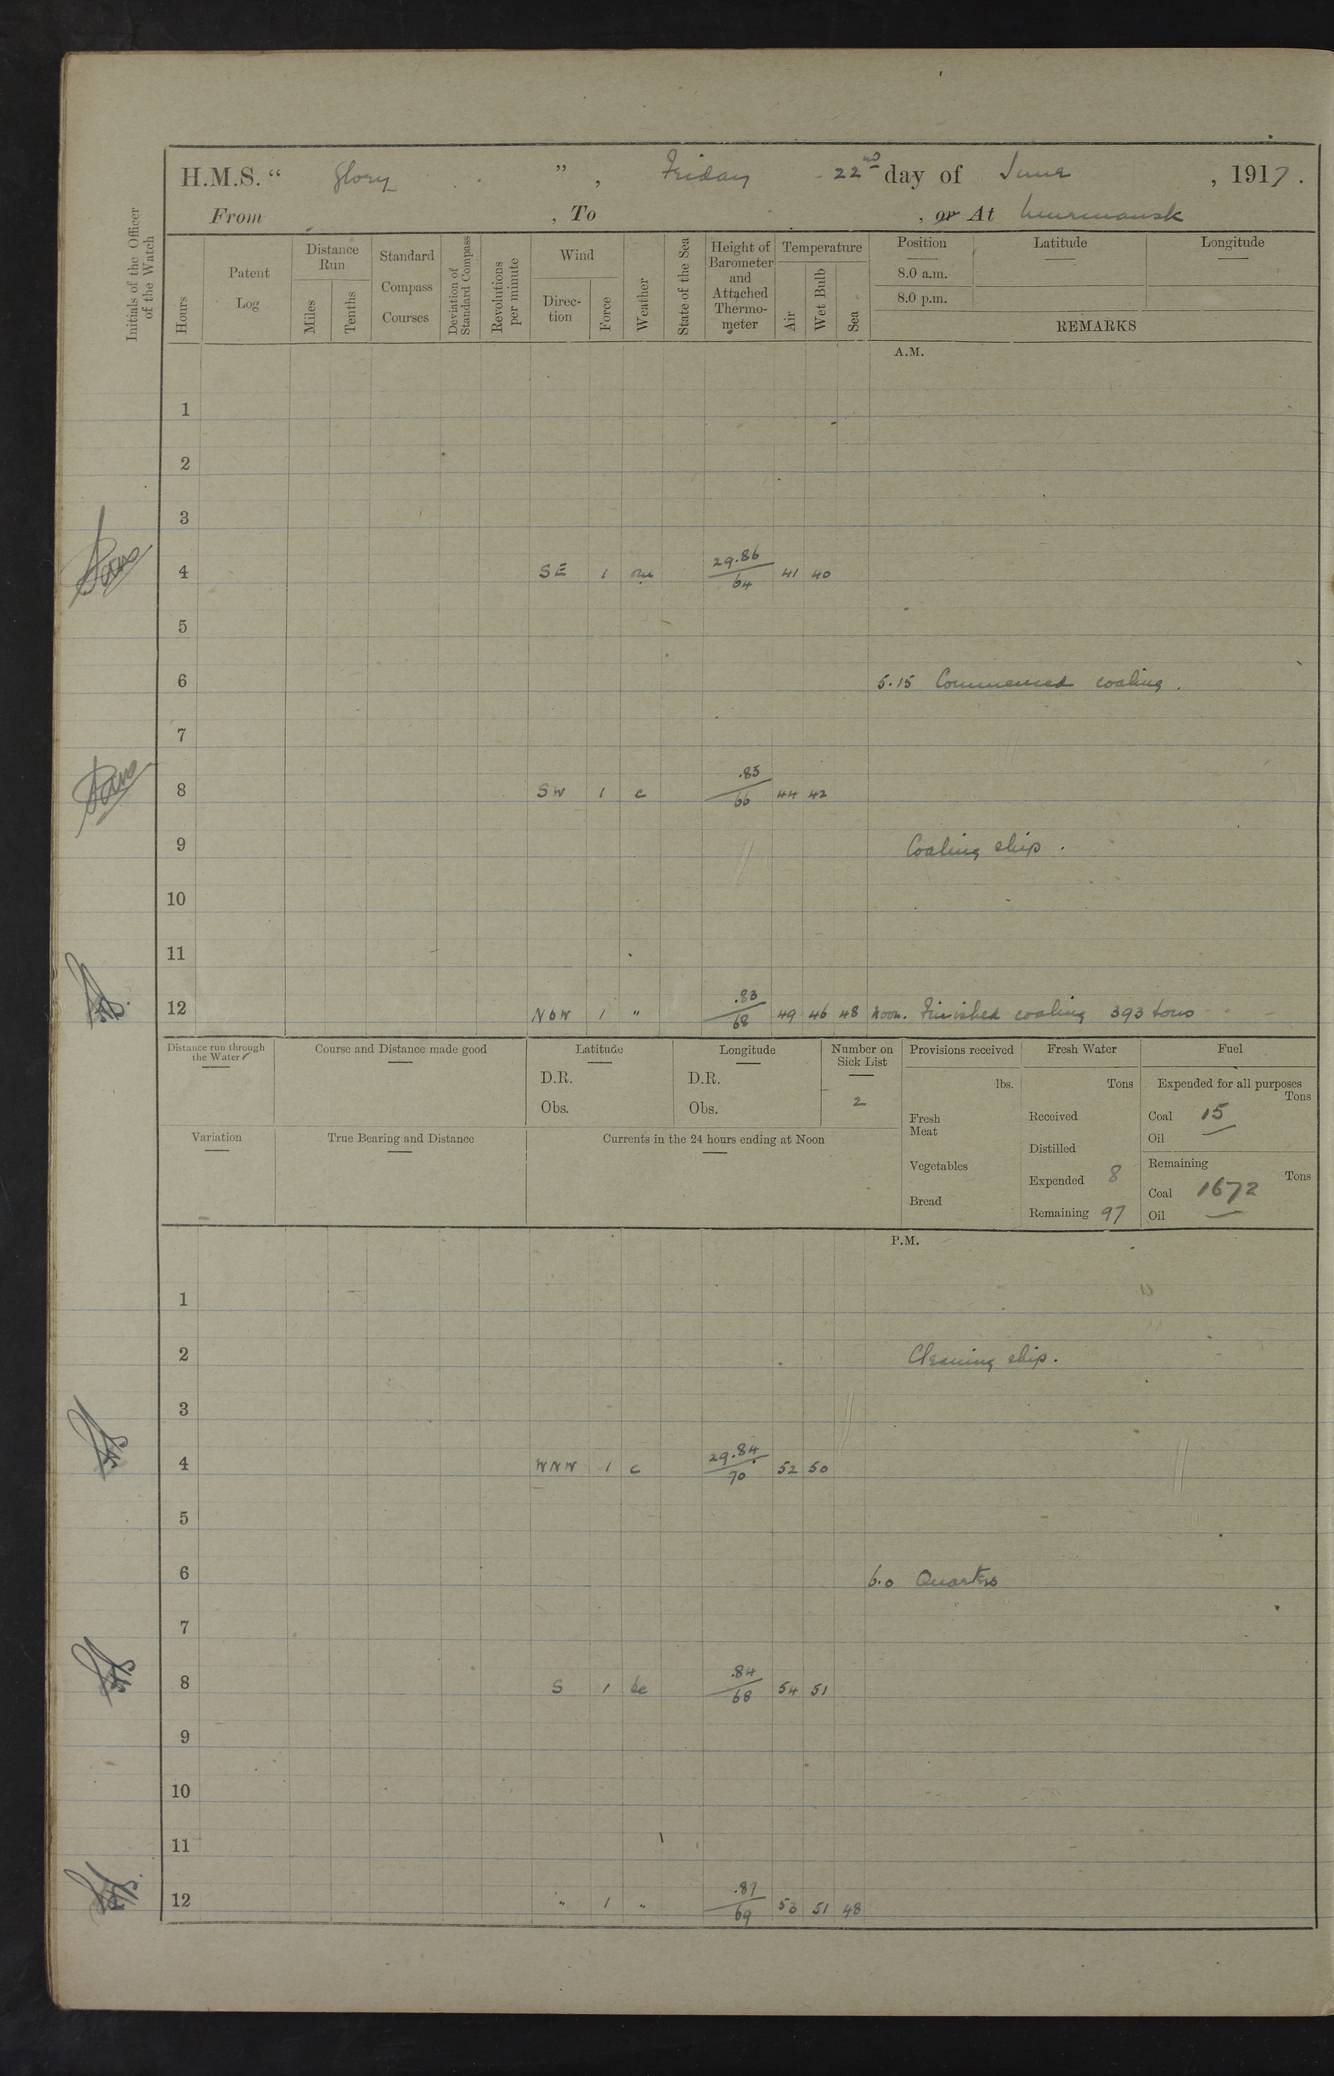 H.M.S. “ Glory ” , Friday 22nd day of June , 1917 .
From , To , or At Murmansk
Initials of the Officer of the Watch
Hours
Patent Log
Distance Run
Miles
Tenths
Standard Compass Courses
Deviation of Standard Compass
Revolutions per minute
Wind
Direc-tion
Force
Weather
State of the Sea
Height of Barometer and Attached Thermo-meter
Temperature
Air
Wet Bulb
Sea
Position Latitude Longitude
8.0 a.m.
8.0 p.m.
REMARKS
A.M.
1
2
3
4 SE 1 29.86/64 41 40
5
6 5.15 Commenced coaling.
7
8 SW 1 c .85/66 44 42
9 Coaling ship.
10
11
12 NbW 1 " .83/68 49 46 48 Noon. Finished coaling 393 tons
Distance run through the Water
Course and Distance made good
Latitude
D.R.
Obs.
Longitude
D.R.
Obs.
Number on Sick List
2
Provisions received
lbs.
Fresh Meat
Vegetables
Bread
Fresh Water
Tons
Received
Distilled
Expended 8
Remaining 97
Fuel
Expended for all purposes
Tons
Coal 15
Oil —
Remaining
Tons
Coal 1672
Oil —
Variation
True Bearing and Distance
Currents in the 24 hours ending at Noon
P.M.
1
2 Cleaning ship.
3
4 WNW 1 c 29.84/70 52 50
5
6 6.0 Quarters
7
8 S 1 bc .84/68 54 51
9
10
11
12 " 1 " .81/69 53 51 48